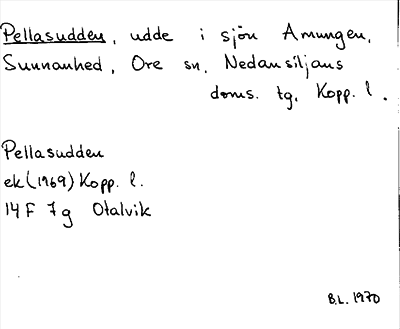 Pellasudden, udde i sjön Amungen,
Sunnanhed, Ore sn, Nedansiljans
doms. tg, Kopp. l.
Pellasudden
ek (1969) Kopp. l.
14 F 7 g Otalvik
B.L. 1970